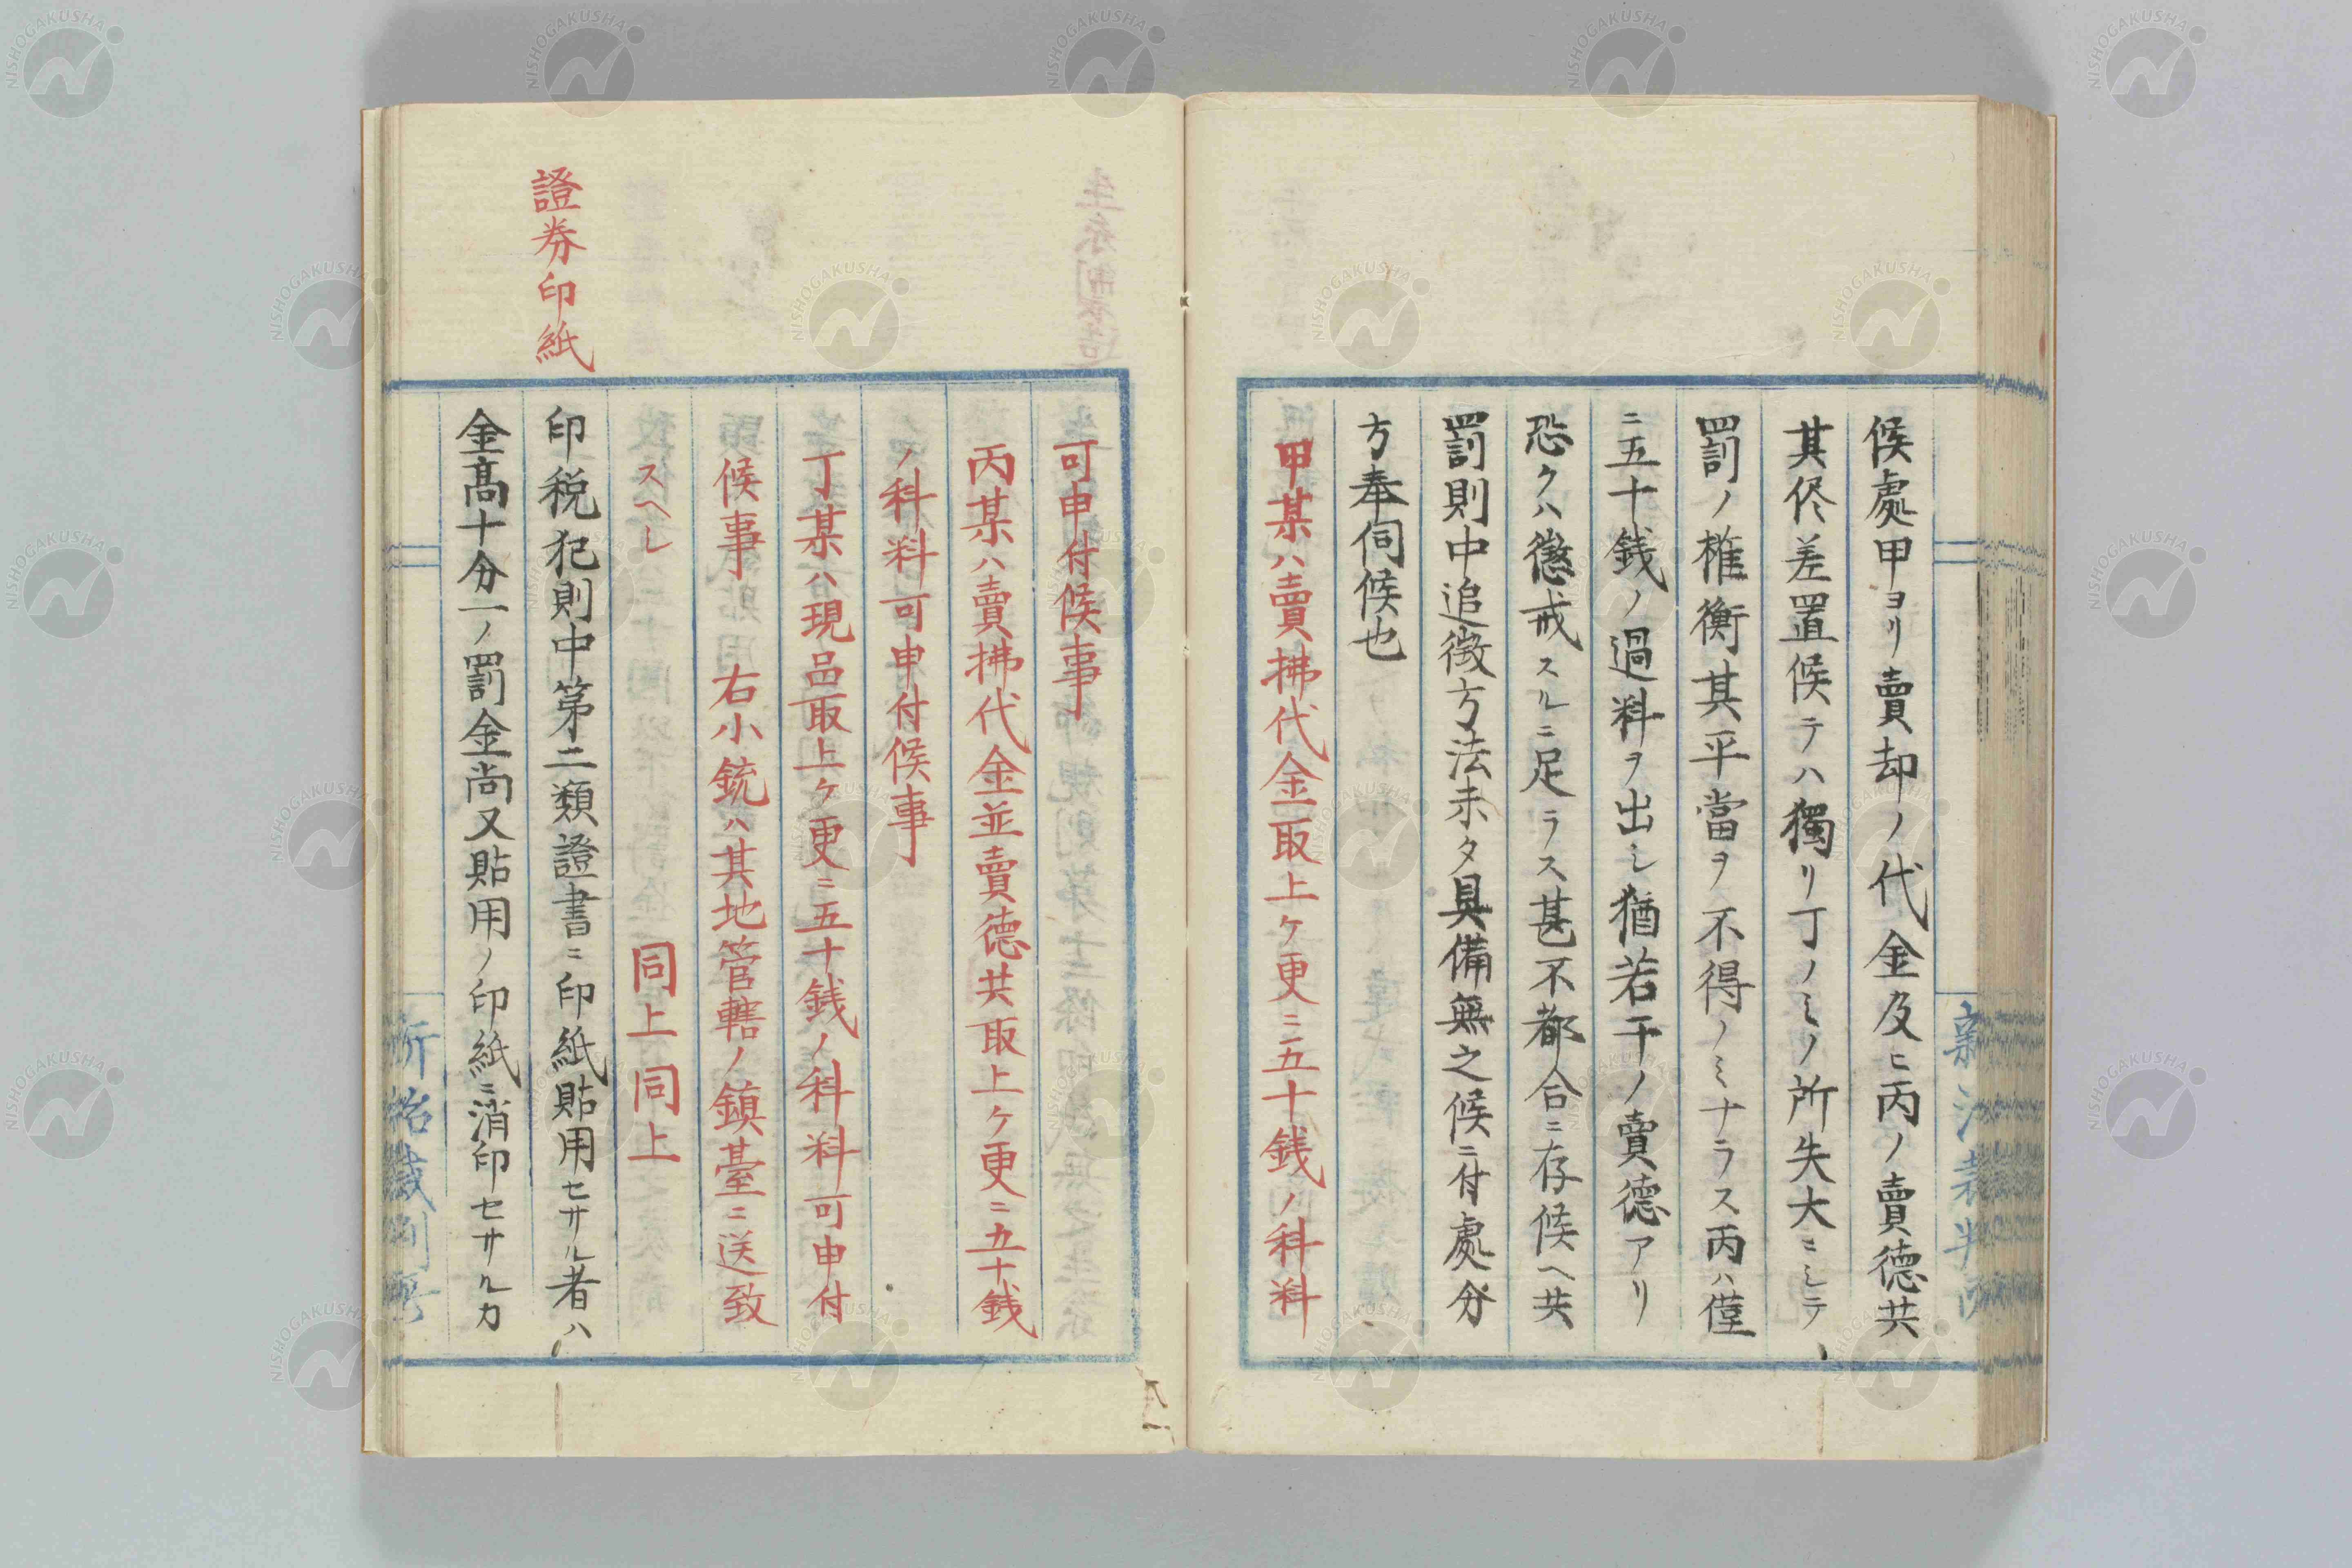 候處甲ヨリ賣却ノ代金及ヒ丙ノ賣德共
其侭差置候テハ獨リ丁ノミノ所失大ニシテ
罰ノ権衡其平當ヲ不得ノミナラス丙ハ僅
ニ五十銭ノ過料ヲ出シ猶若干ノ賣德アリ
恐クハ懲戒スルニ足ラス甚不都合ニ存候ヘ共
罰則中追徴方法未タ具備無之候ニ付處分
方奉伺候也
甲某ハ賣拂代金取上ケ更ニ五十銭ノ科料
可申付候事
丙某ハ賣拂代金並賣德共取上ケ更ニ五十銭
ノ科料可申付候事
丁某ハ現品取上ケ更ニ五十銭ノ科料可申付
候事 右小銃ハ其地管轄ノ鎮臺ニ送致
スヘシ 同上同上
證券印紙
印税犯則中第二類證書ニ印紙貼用セサル者ハ
金髙十分一ノ罰金尚又貼用ノ印紙ニ消印セサルカ
NISHOGAKUSHA